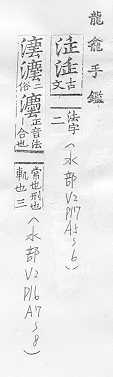 龍龕手鑑
古文二 法字 (水部V2P17A5~6)
二俗 灋 正音法一合也 常也刑也軌也三 (水部V2P16A7~8)